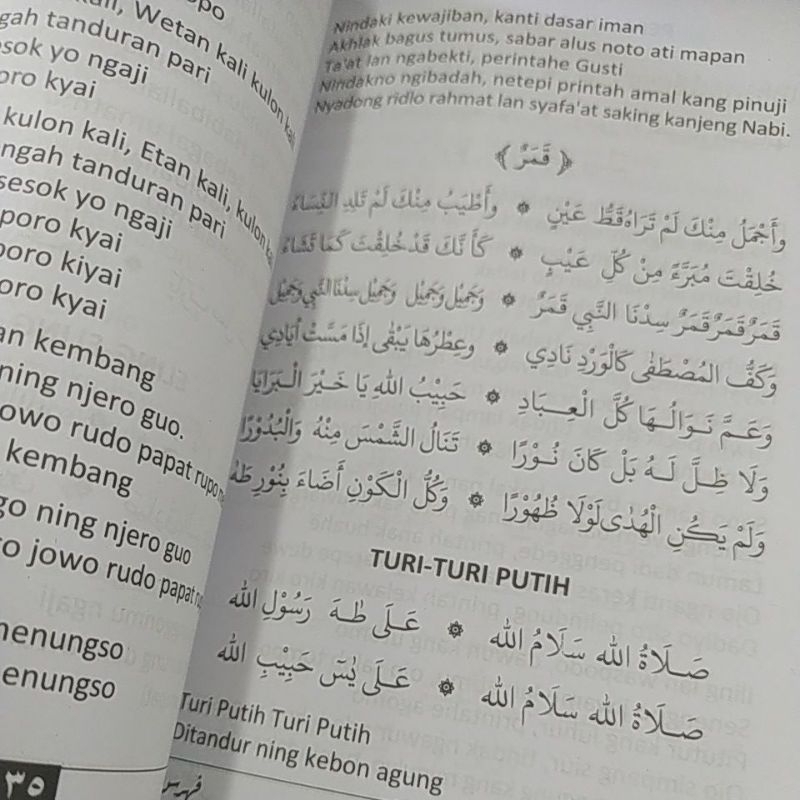 , Wetan kali kulon kali
ngah tanduran pari
sesok yo ngaji
poro kyai
kulon kali, Etan kali, kulon
engah tanduran pari
sesok yo ngaji
poro kyai
poro kiyai
oro kyai
an kembang
ning njero guo.
jowo rudo papat rupo
kembang
go ning njero guo
o jowo rudo papat
nenungso
enungso
٣٥
Nindaki kewajiban, kanti dasar iman
Akhlak bagus tumus, sabar alus noto ati mapan
Ta'at lan ngabekti, perintahe Gusti
Nindakno ngibadah, netepi printah amal kang pinuji
Nyadong ridlo rahmat lan syafa'at saking kanjeng Nabi.
﴿ قَمَرٌ ﴾
وَأَجْمَلُ مِنْكَ لَمْ تَرَاهُ قَطُّ عَيْنٍ ۞ وَأَطْيَبُ مِنْكَ لَمْ تَلِدِ النِّسَاءُ
خُلِقْتَ مُبَرَّءً مِنْ كُلِّ عَيْبٍ ۞ كَأَنَّكَ قَدْ خُلِقْتَ كَمَا تَشَاءُ
قَمَرٌ قَمَرٌ قَمَرٌ سِدْنَا النَّبِي قَمَرٌ ۞ وَجَمِيْل وَجَمِيْل وَجَمِيْل سِدْنَا النَّبِي وَجَمِيْل
وَكَفُّ الْمُصْطَفٰى كَالْوَرْدِ نَادِي ۞ وَعِطْرُهَا يَبْقٰى إِذَا مَسَّتْ أَيَادِي
وَعَمَّ نَوَالُهَا كُلَّ الْعِبَادِ ۞ حَبِيْبُ اللهِ يَا خَيْرَ الْبَرَايَا
وَلَا ظِلَّ لَهُ بَلْ كَانَ نُوْرًا ۞ تَنَالُ الشَّمْسَ مِنْهُ وَالْبُدُوْرًا
وَلَمْ يَكُنِ الْهُدٰى لَوْلَا ظُهُوْرًا ۞ وَكُلُّ الْكَوْنِ أَضَاءَ بِنُوْرِ طٰهٰ
TURI-TURI PUTIH
صَلَاةُ الله سَلَامُ الله ۞ عَلَى طٰهَ رَسُوْلِ الله
صَلَاةُ الله سَلَامُ الله ۞ عَلَى يٰسٓ حَبِيْبِ الله
Turi Putih Turi Putih
Ditandur ning kebon agung
فهرس